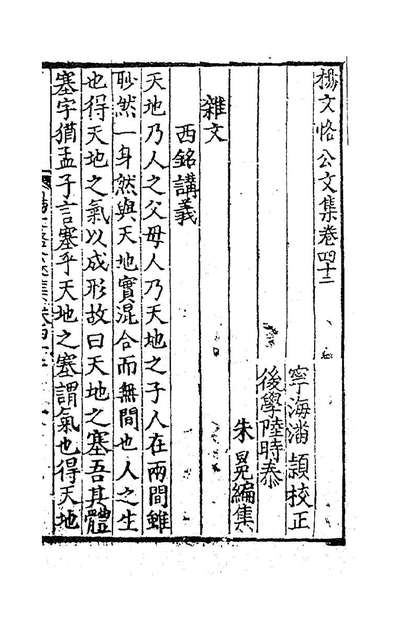 楊文恪公文集卷四十二
寧海潘頴校正
後學陸時泰
朱晃編集
雜文
西銘講義
天地乃人之父母人乃天地之子人在兩間雖
眇然一身然與天地實混合而無間也人之生
也得天地之氣以成形故曰天地之塞吾其體
塞字猶孟子言塞乎天地之塞謂氣也得天地